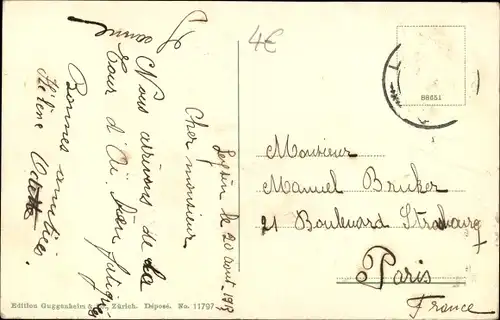 Leysin le 20 août 1913
Cher monsieur
Nous arrivons de la
tour d'Aï. bien fatigués
Bonnes amitiés.
Hélène Odette
4€
B8651
Monsieur
Manuel Bruker
21 Boulevard Strasbourg
Paris
France
Edition Guggenheim & Zürich. Déposé. No. 11797